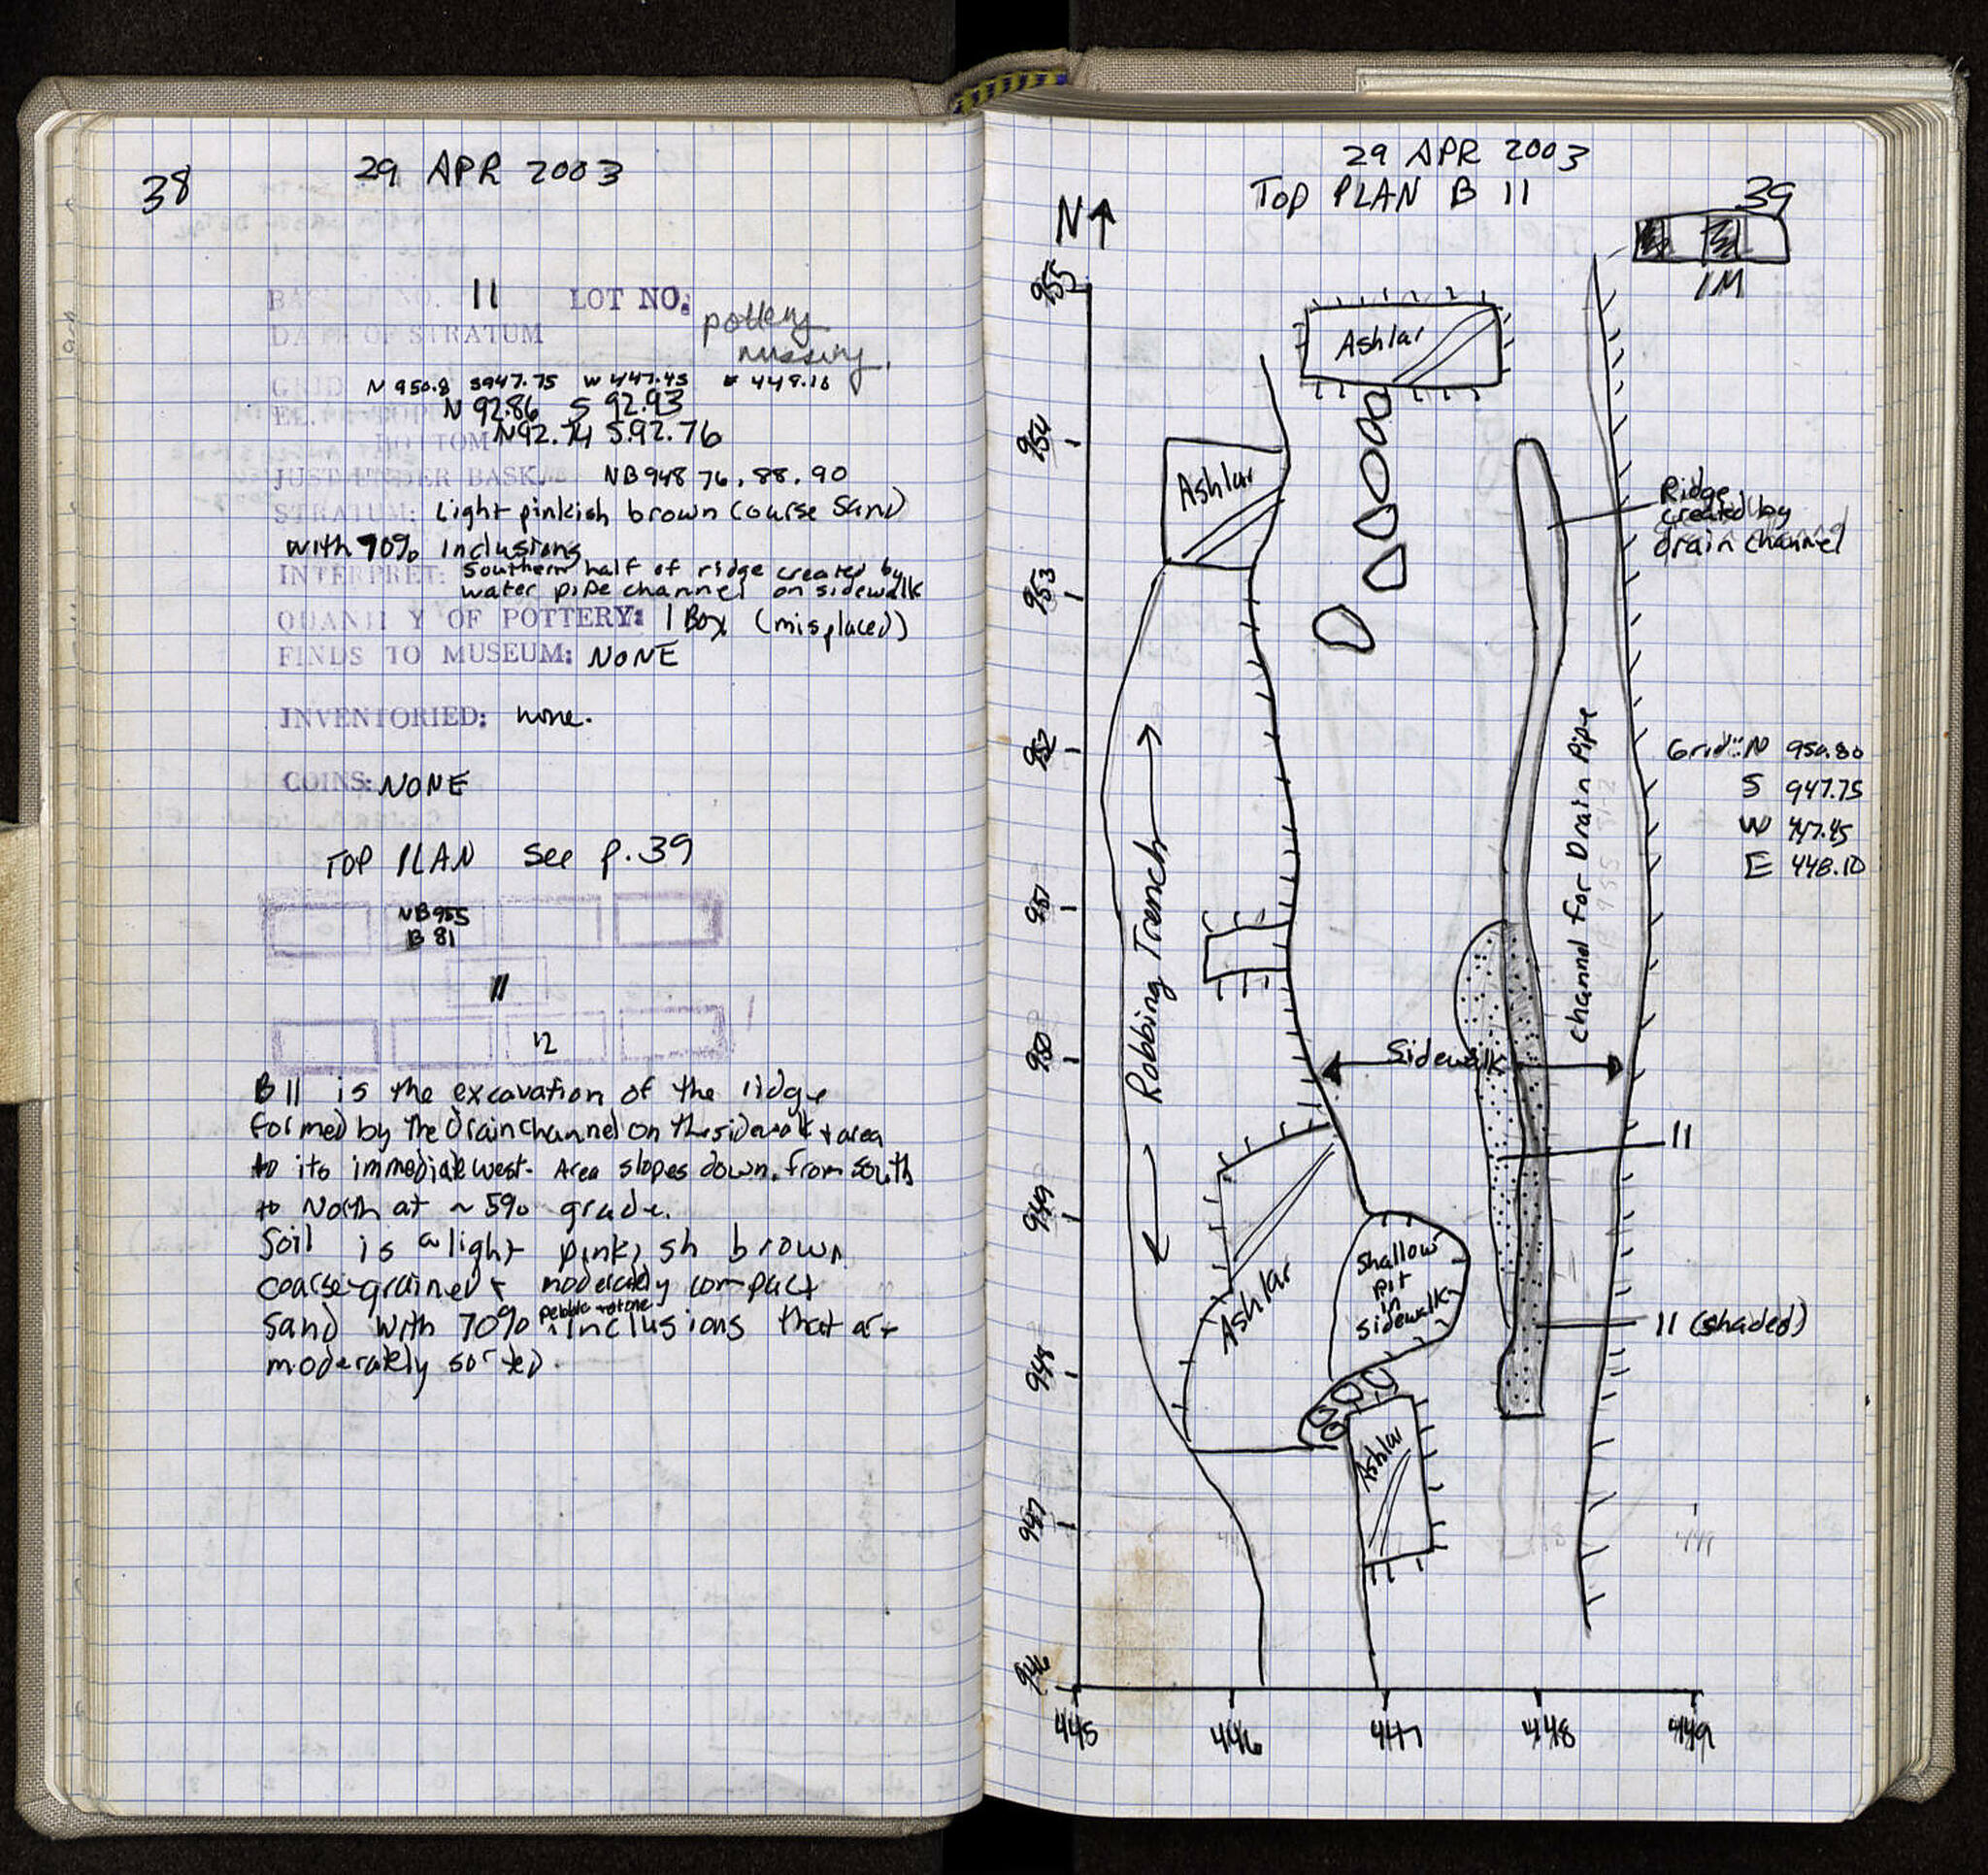 38
29 APR 2003
BASKET NO. 11 LOT NO:
pottery
missing.
DATE OF STRATUM
GRID N 950.8 S947.75 W 447.45 E 449.10
EL. TOP N 92.86 S 92.93
BOTTOM N92.74 S.92.76
JUST UNDER BASK. NB948 76, 88, 90
STRATUM: Light pinkish brown course sand
with 70% inclusions
INTERPRET: Southern half of ridge created by
water pipe channel on sidewalk
QUANTITY OF POTTERY: 1 Box (misplaced)
FINDS TO MUSEUM: NONE
INVENTORIED: none.
COINS: NONE
TOP PLAN see p.39
NB955
B 81
11
12
B 11 is the excavation of the ridge
formed by the drain channel on the sidewalk + area
to its immediate west. Area slopes down from south
to North at ~ 5% grade.
Soil is a light pinkish brown
coarse-grained + moderately compact
pebble + stone
sand with 70% inclusions that are
moderately sorted.
29 APR 2003
TOP PLAN B 11
39
N
1M
955
954
953
952
951
950
949
948
947
946
445
446
447
448
449
Ashlar
Ashlar
Ridge
created by
drain channel
Robbing Trench
Channel for Drain Pipe
Grid: N 950.80
S 947.75
W 447.45
E 448.10
Sidewalk
11
Ashlar
Shallow
pit
in
sidewalk
11 (shaded)
Ashlar